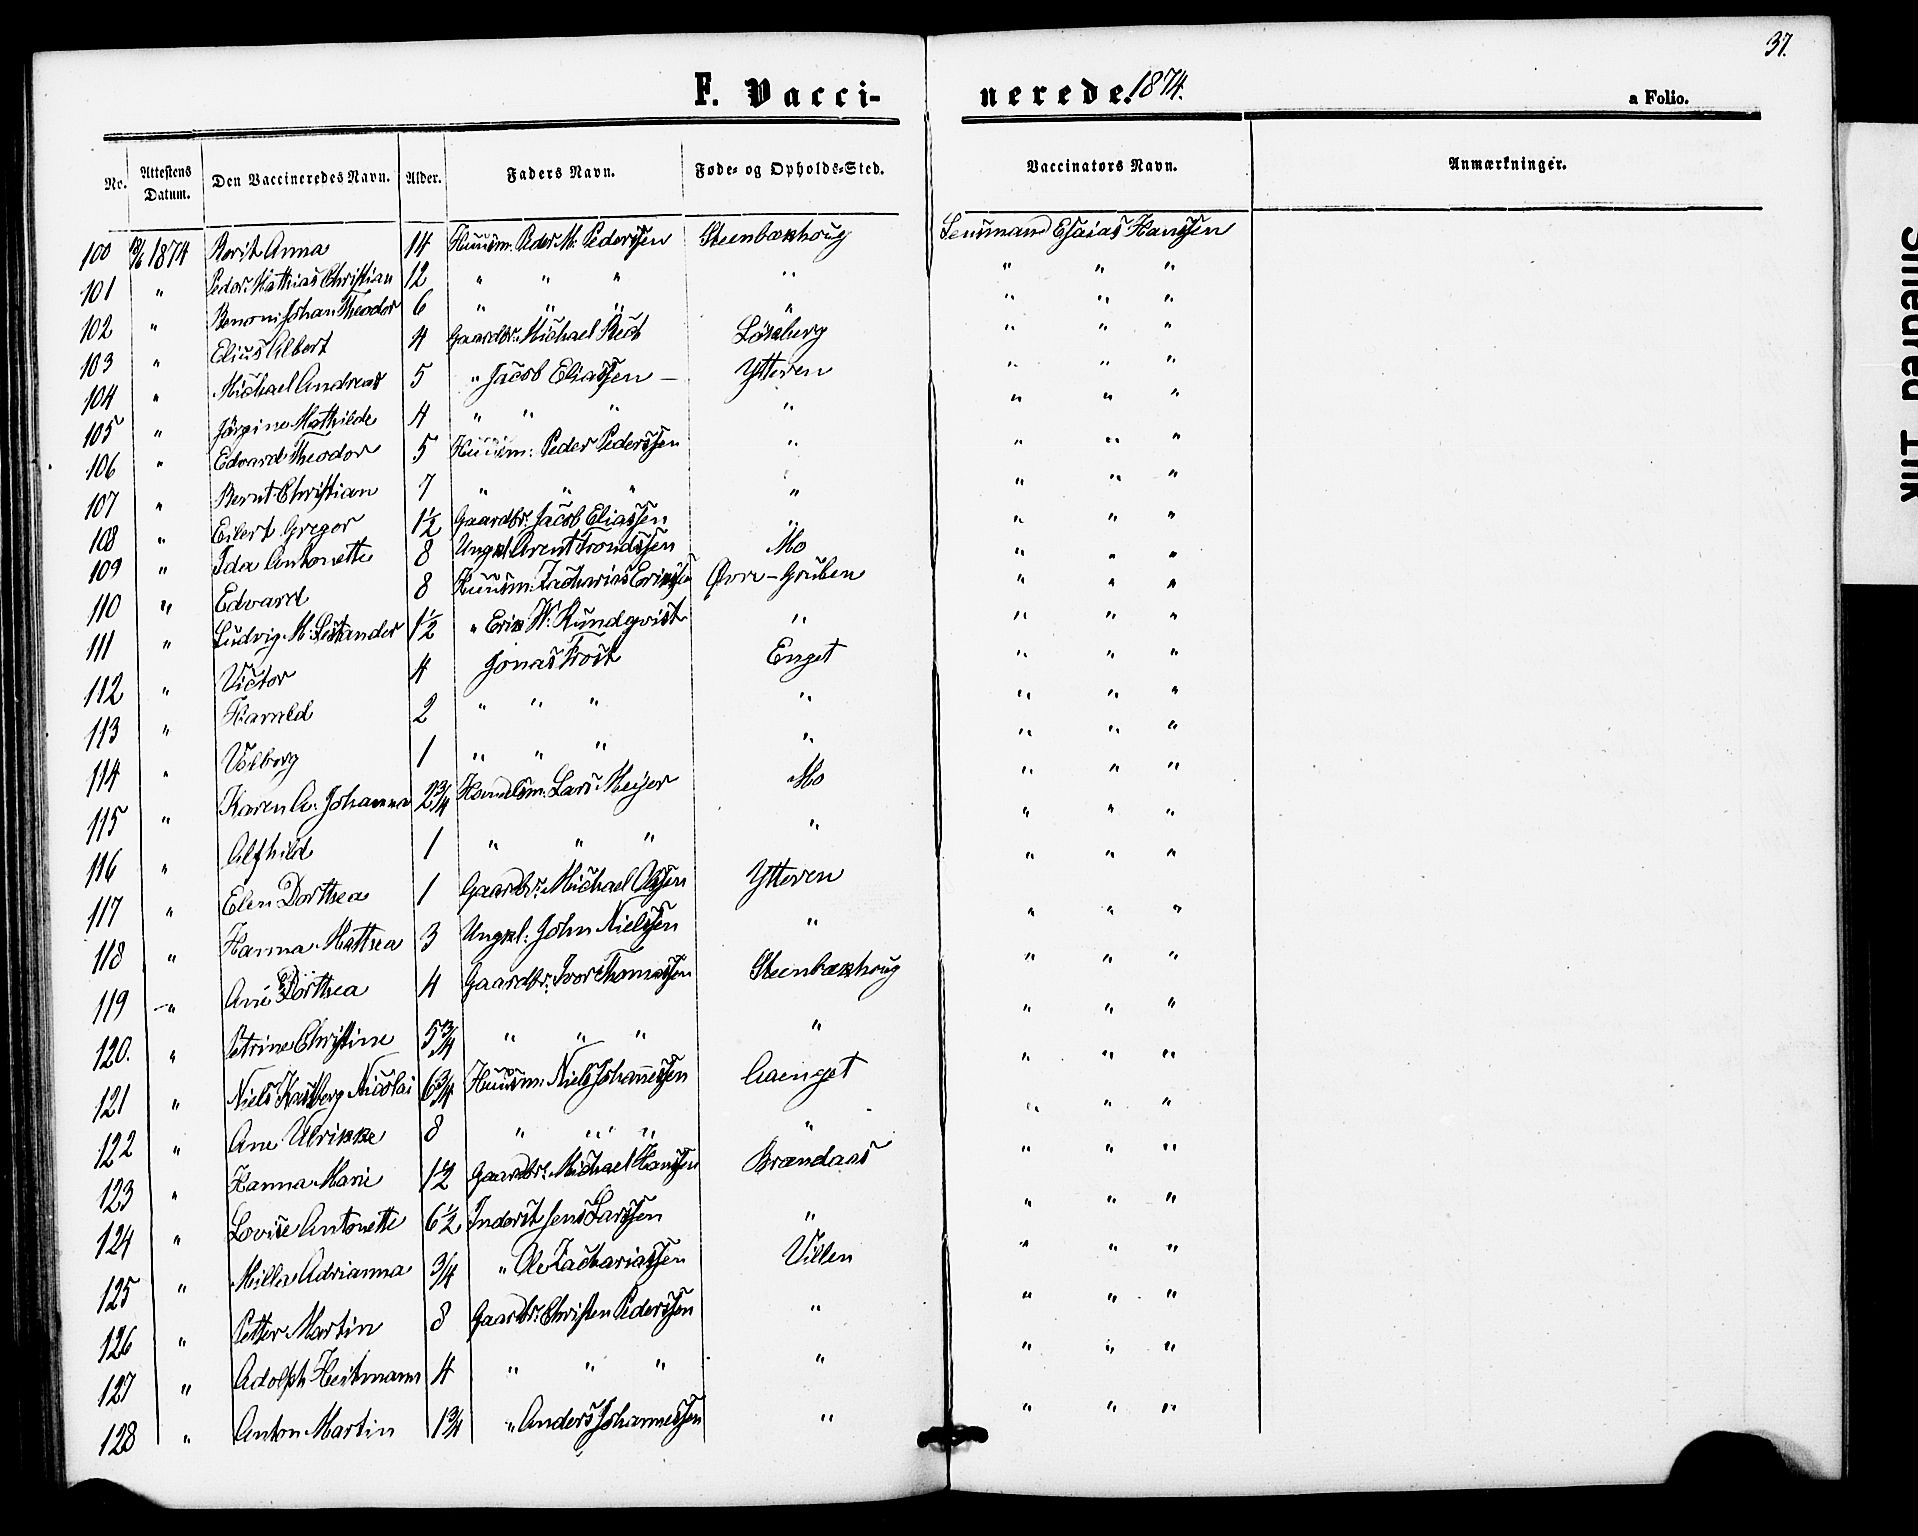 37.
F. Vaccinerede. 1874.
a Folio.
No. Attestens Datum. Den Vaccineredes Navn. Alder. Faders Navn. Føde- og Opholds-Sted. Vaccinators Navn. Anmærkninger.
100 1874 Berit Anna 14 Huusm: Peder M: Pederssen Steenbækhoug Lensmand Esaias Hanssen
101 " Peder Mathias Christian 12 " " " " " " "
102 " Benoni Johan Theodor 6 " " " " " " "
103 " Elius Albert 4 Gaardbr: Michael Bech Langberg " " "
104 " Michael Andreas 5 " Jacob Eliassen – Ytteren " " "
105 " Jørgine Mathilde 4 " " " " " " "
106 " Edvard Theodor 5 Huusm: Peder Pederssen " " " "
107 " Bernt Christian 7 " " " " " " "
108 " Eilert Gregor 1½ Gaardbr: Jacob Eliassen " " " "
109 " Ida Antonette 8 Ungkl. Arent Trondssen Mo " " "
110 " Edvard 8 Huusm: Zacharias Erikssen Øvre-Gruben " " "
111 " Ludvig M: Lestander 1½ " Erik W. Rundqvist " " " "
112 " Victor 4 Jonas Frost Enget " " "
113 " Harald 2 " " " " " " "
114 " Volborg 1 " " " " " " "
115 " Karen A: Johanna 2¾ Handelsm: Lars Meyer Mo " " "
116 " Alfhild 1 " " " " " " "
117 " Elen Dorthea 1 Gaardbr: Michael Olssen Ytteren " " "
118 " Hanna Mathea 3 Ungkl: John Nielssen " " " "
119 " Ane Dorthea 4 Gaardbr: Ivor Thomassen Steenbækhoug " " "
120. " Petrine Christine 5¾ " " " " " " "
121 " Niels Nicolai 6¾ Huusm: Niels Johannessen Aaenget " " "
122 " Ane Ulrikke 8 " " " " " " "
123 " Hanna Marie 1½ Gaardbr: Michael Hanssen Brændaas " " "
124 " Lovise Antonette 6½ Inderst Jens Larssen " " " "
125 " Milla Adrianna ¾ " Ole Zachariassen Villen " " "
126 " Petter Martin 8 Gaardbr: Christen Pederssen " " " "
127 " Adolph Heitmann 4 " " " " " " "
128 " Anton Martin 1¾ " Anders Johannessen " " " "